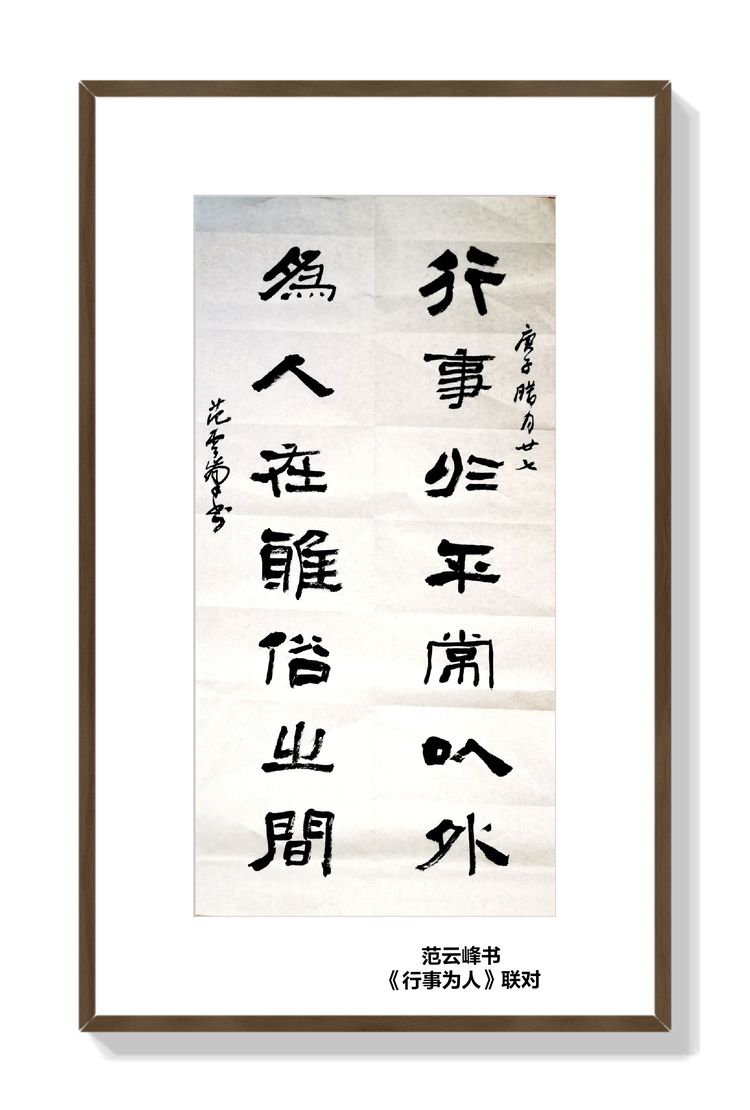 庚子腊月廿七
行事平常以外
為人在雅俗之間
范雲峯书
范云峰书
《行事为人》联对